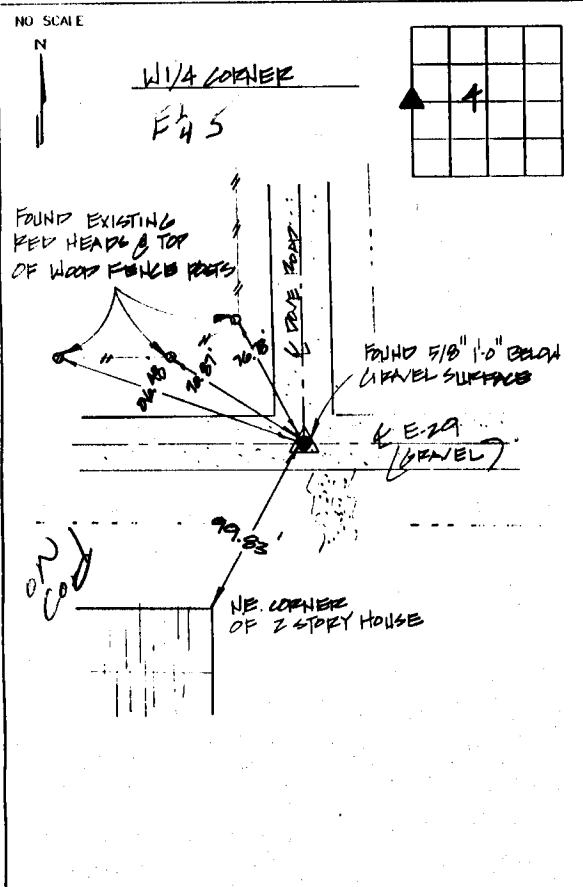 NO SCALE
N
W1/4 CORNER
E 1/4 5
4
FOUND EXISTING
RED HEADS @ TOP
OF WOOD FENCE POSTS
℄ DOVE ROAD
FOUND 5/8" 1'-0" BELOW
GRAVEL SURFACE
℄ E-29
(GRAVEL)
99.83'
ON
NE. CORNER
OF 2 STORY HOUSE